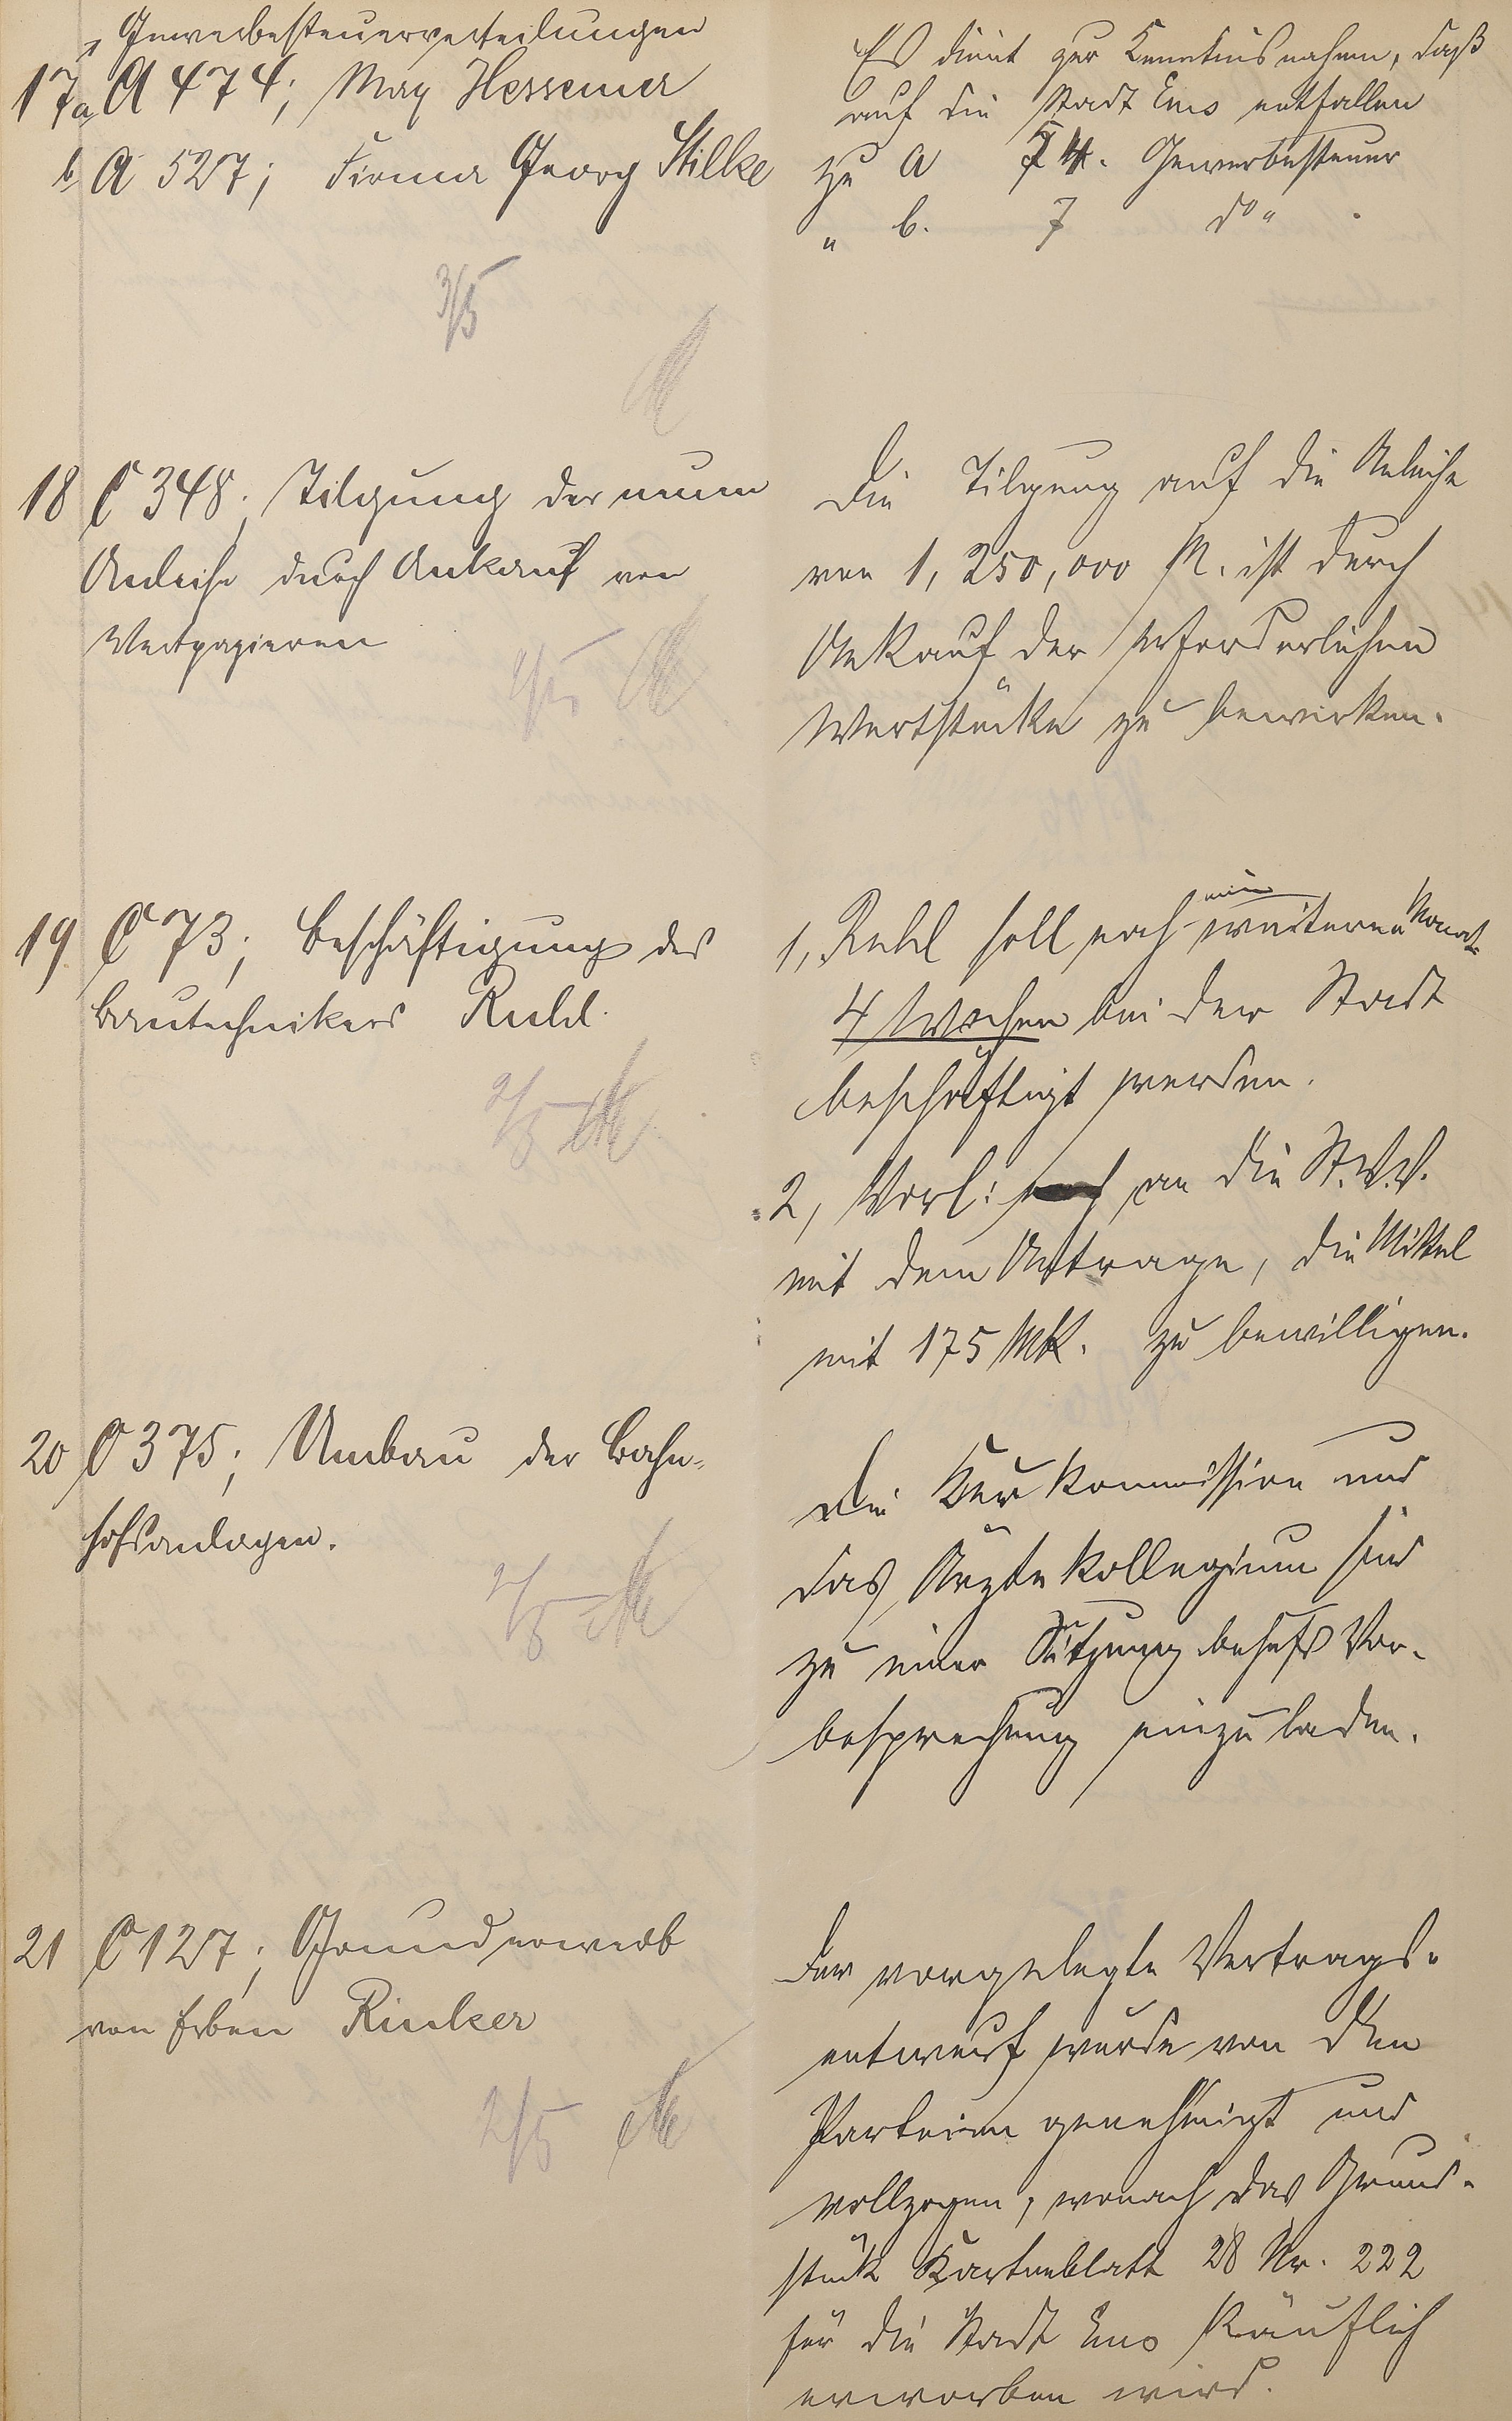 Gewerbesteuerverteilungen
17a A 474; Max Hessemer
b A 527; Firma Georg Stilke
3/5
Es dient zur Kenntnisnahme, daß
auf die Stadt Ems entfallen
zu a 54. Gewerbesteuer
" b. 7 do "
18 C 348. Tilgung der neuen
Anleihe durch Ankauf von
Wertpapieren
2/5
Die Tilgung auf die Anleihe
von 1,250,000 M. ist durch
Ankauf der erforderlichen
Wertstücke zu bewirken.
19 C 73; Beschäftigung des
Bautechnikers Ruhl.
2/5
1, Ruhl soll noch weiteren Monat
4 Wochen bei der Stadt
beschäftigt werden.
2, Vorl: an die St.V.V.
mit dem Antrage, die Mittel
mit 175 Mk. zu bewilligen.
20 C 375; Umbau der Bahn-
hofsanlagen.
2/5
Die Kurkommission und
das Ärztekollegium sind
zu einer Sitzung behufs Vor-
besprechung einzuladen.
21 C 127; Grunderwerb
von Erben Rinker
2/5
Der vorgelegte Vertrags-
entwurf wurde von den
Parteien genehmigt und
vollzogen, wonach das Grund-
stück Kartenblatt 28 Nr. 222
für die Stadt Ems käuflich
erworben wird.